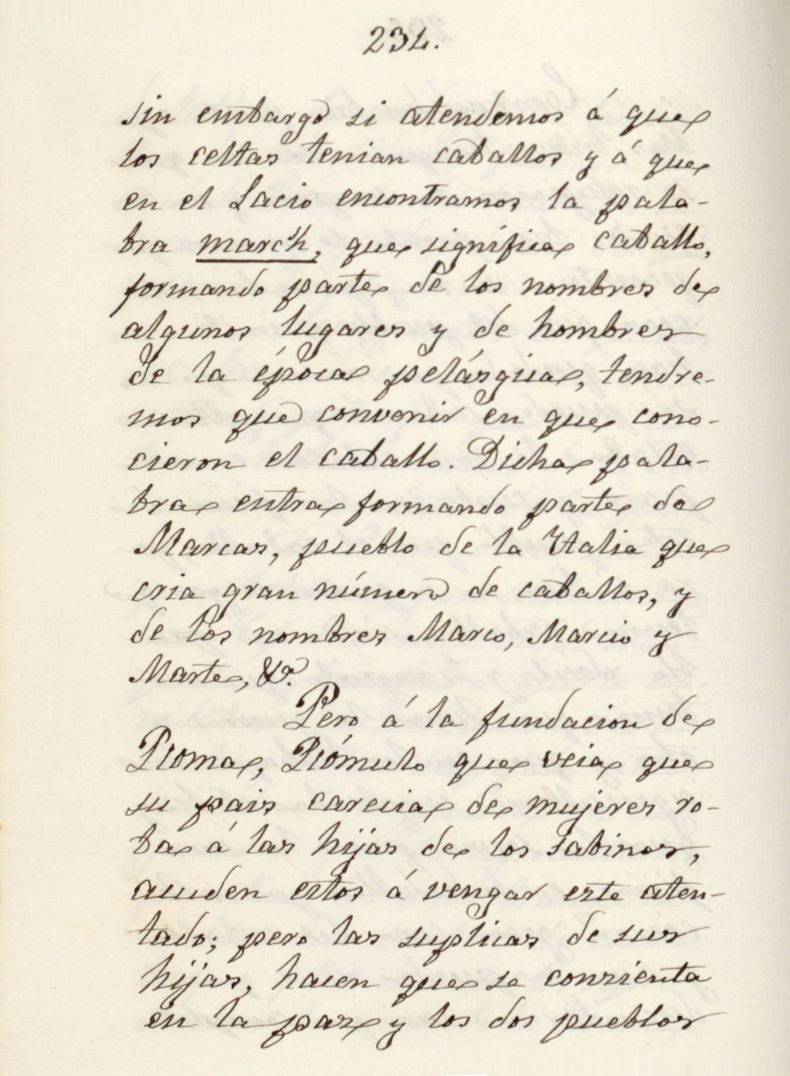 234.
sin embargo si atendemos á que
los celtas tenian caballos y á que
en el Lacio encontramos la pala-
bra march, que significa caballo,
formando parte de los nombres de
algunos lugares y de hombres
de la época pelásgica, tendre-
mos que convenir en que cono-
cieron el caballo. Dicha pala-
bra entra formando parte de
Marcas, pueblo de la Italia que
cria gran número de caballos, y
de los nombres Marco, Marcio y
Marte, &a.
Pero á la fundacion de
Roma, Rómulo que veia que
su pais carecia de mujeres ro-
ba á las hijas de los sabinos,
acuden estos á vengar este aten-
tado; pero las suplicas de sus
hijas, hacen que se consienta
en la paz y los dos pueblos